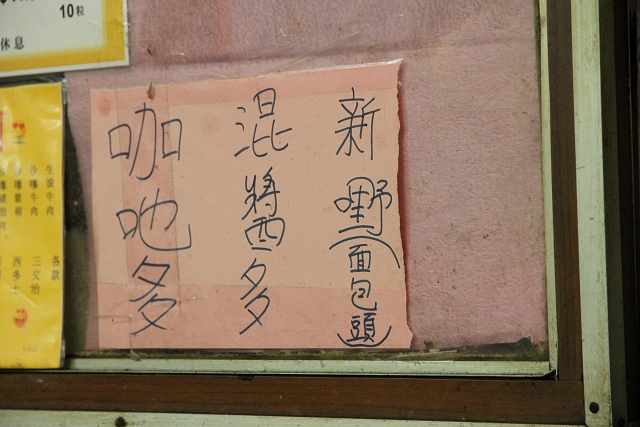 10粒
休息
新嘢(面包頭)
混醬多
咖吔多
生滾牛肉
沙嗲牛肉
各款
三文治
西多士